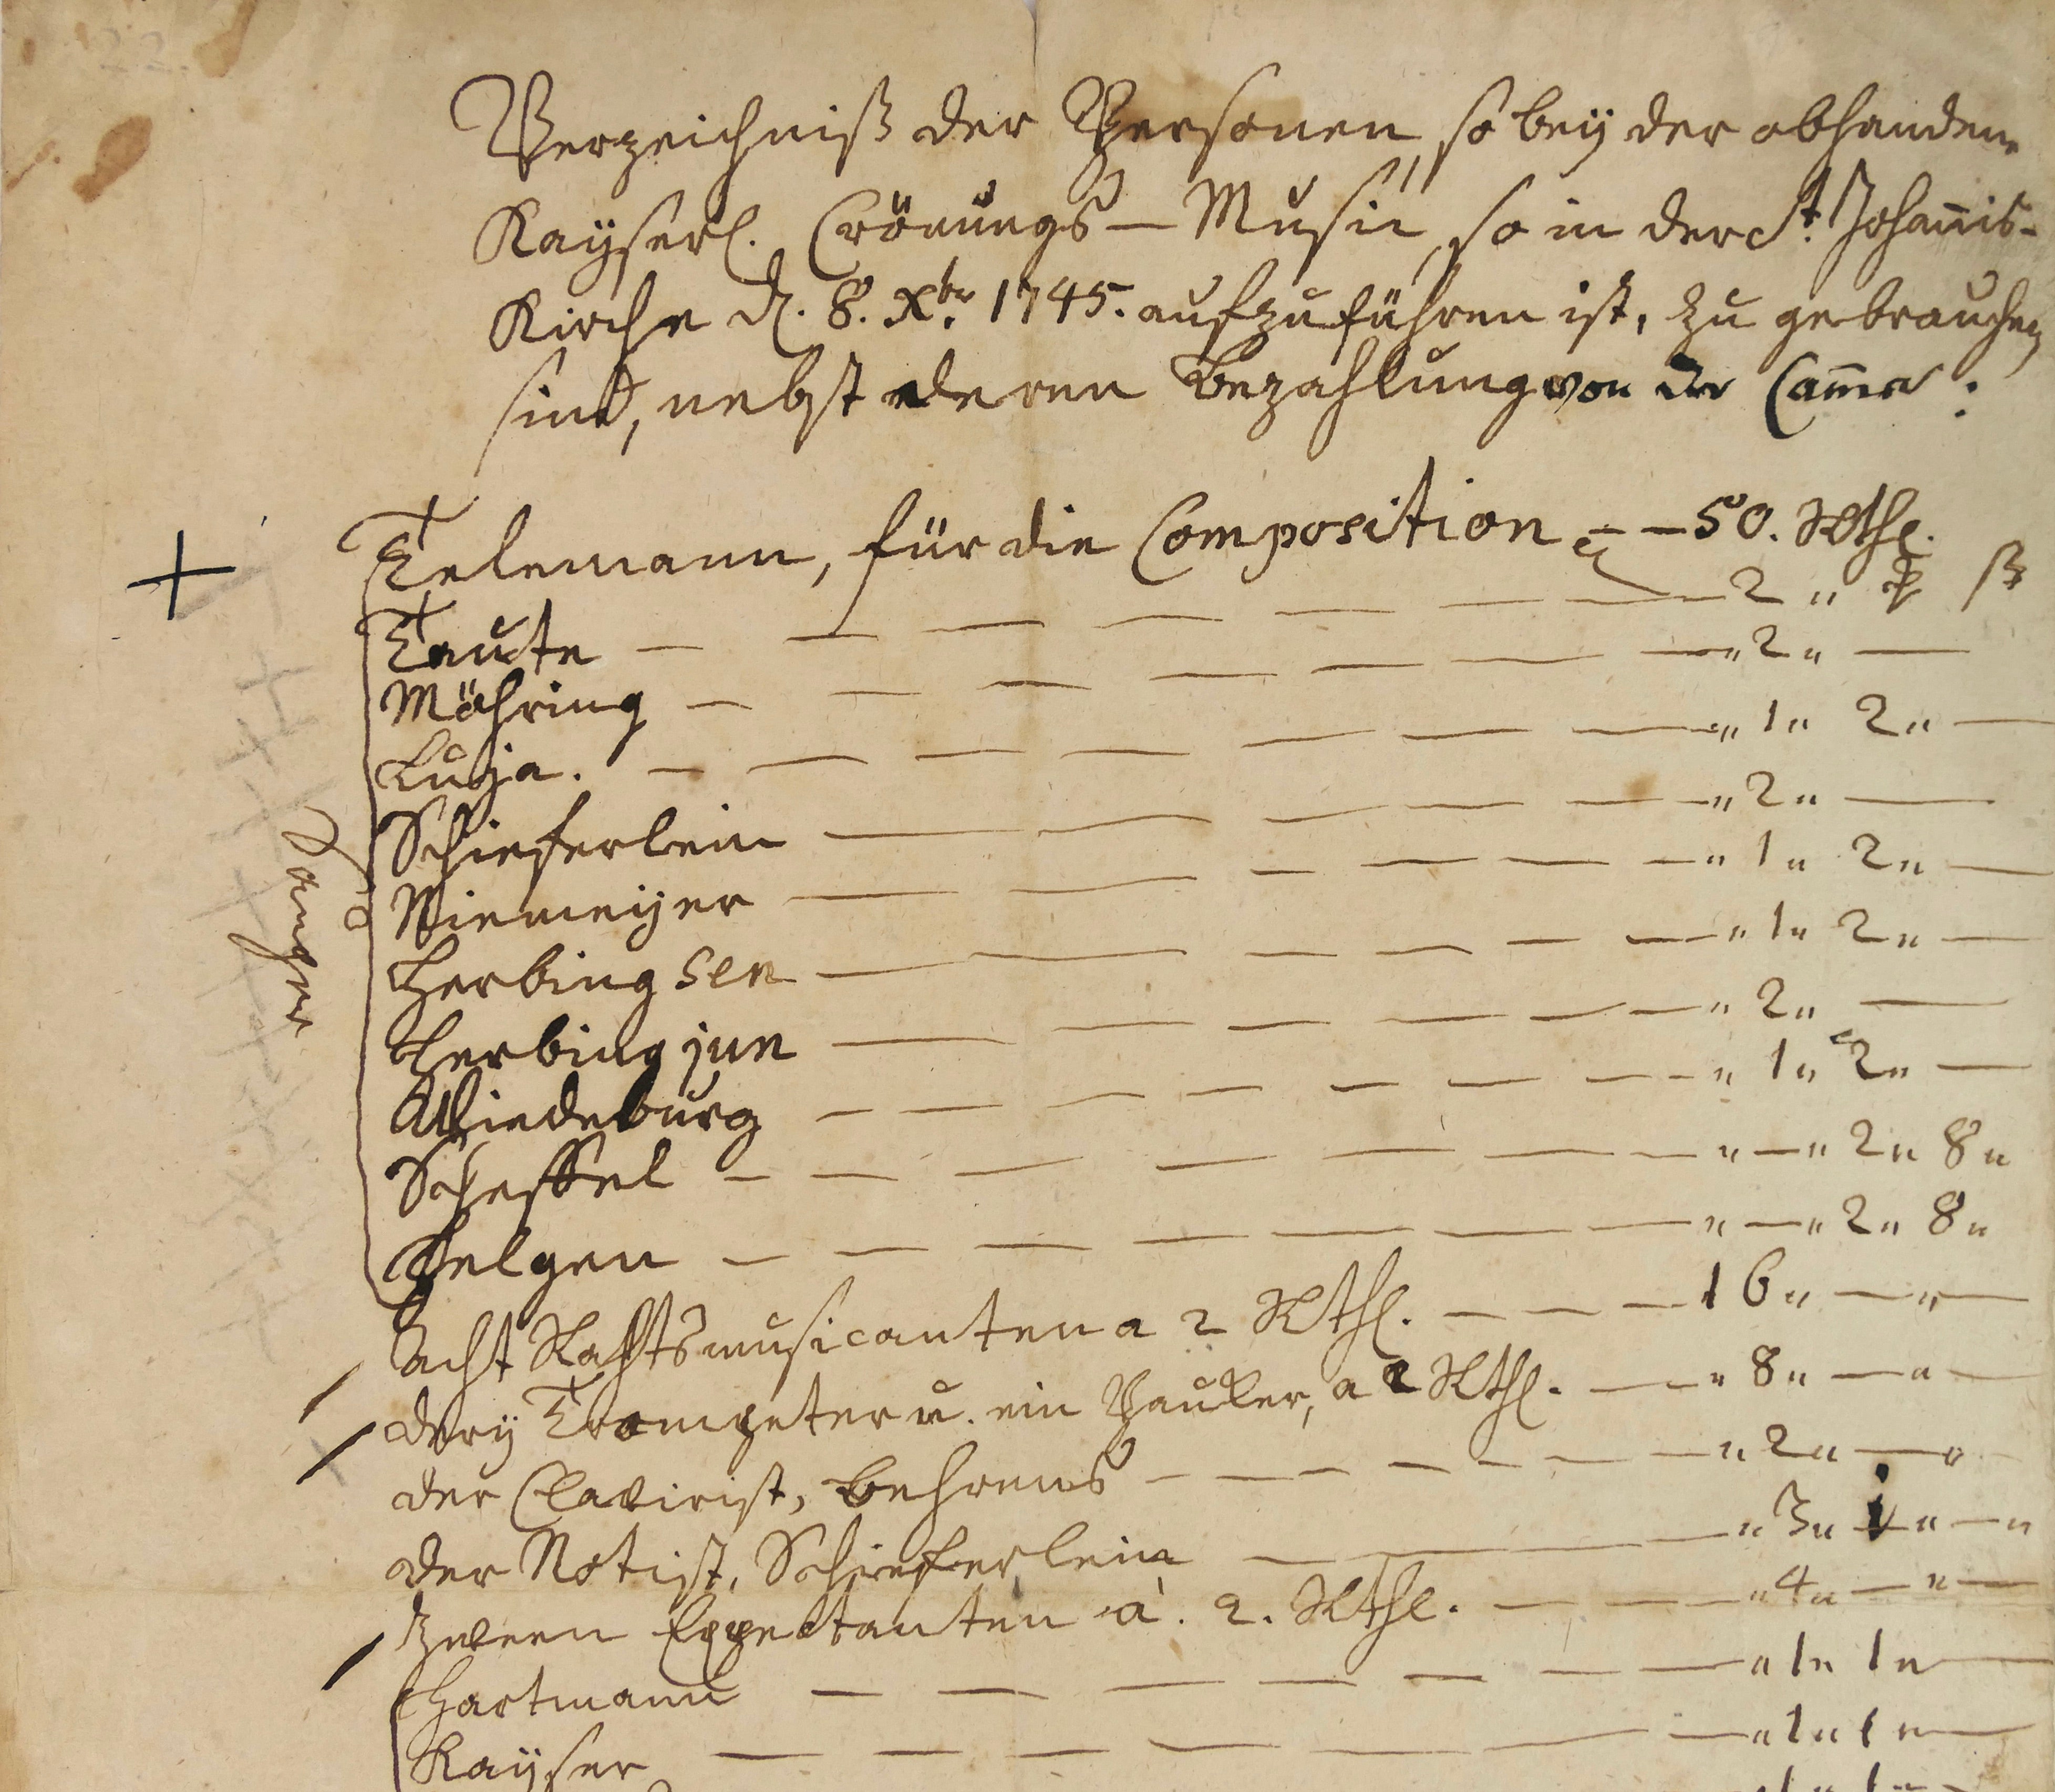 Verzeichniß der Personen, so bey der obhanden
Kayserl. Crönungs-Music, so in der St. Johannis-
Kirche d. 8. Xbr. 1745. aufzuführen ist, zu gebrauchen
sind, nebst deren Bezahlung von der Camer:
Telemann, für die Composition – – 50. Rthl.
Taute – – – – – – 2 „ ꝟ ß
Möhring – – – – – – „ 2 „ –
Luija. – – – – – – – „ 1 „ 2 „ –
Schieferlein – – – – – „ 2 „ –
Niemeyer – – – – – – „ 1 „ 2 „ –
Herbing sen – – – – – – „ 1 „ 2 „ –
Herbing jun – – – – – – „ 2 „ –
Wiedeburg – – – – – – – „ 1 „ 2 „ –
Scheffel – – – – – – – „ – „ 2 „ 8 „
Helgen – – – – – – – „ – „ 2 „ 8 „
Sänger
Acht Rahtsmusicanten a 2 Rthl. – – – 16 „ – „ –
drey Trompeter u. ein Pauker, a 2 Rthl. – „ 8 „ – „ –
der Clavirist, Behrens – – – – – – „ 2 „ – „
der Notist, Schieferlein – – – „ 3 „ – „ – „
zween Expectanten à. 2. Rthl. – – – „ 4 „ – „ –
Hartmann – – – – – – „ 1 „ 1 „ –
Kayser – – – – – – – „ 1 „ 1 „ –